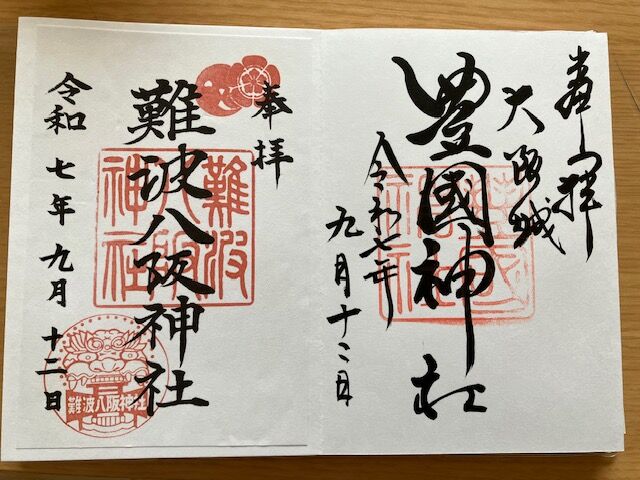 奉拝
大阪城
豊國神社
令和七年
九月十二日
豊国神社
奉拝
難波八阪神社
令和七年九月十二日
難波八阪神社
難波八阪神社